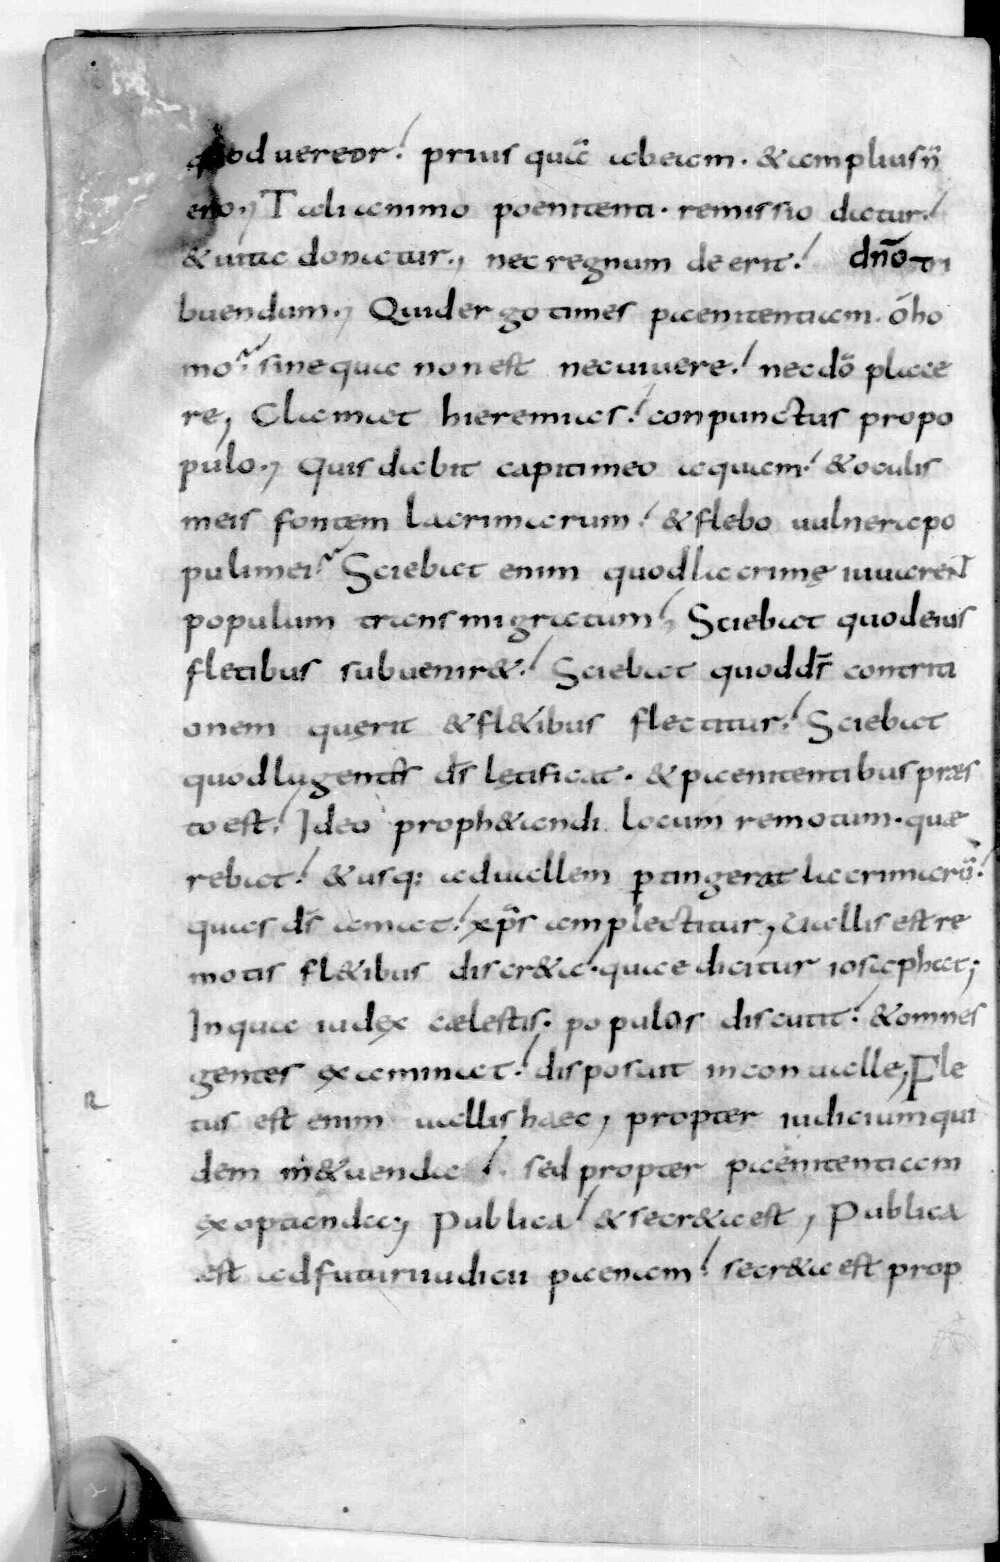 quod uereor. prius quā abeam. & amplius n̄
ero., Tali animo poenitenti. remissio datur.
& uita donatur., nec regnum deerit. dn̄o tri
buendum., Quid ergo times paenitentiam. ó ho
mo. sine qua non est nec uiuere. nec dō place
re, Clamat hieremias. conpunctus pro po
pulo., Quis dabit capiti meo aquam. & oculis
meis fontem lacrimarum. & flebo uulnera po
puli mei. Sciebat enim quod lacrimę iuuarent
populum transmigratum. Sciebat quod eius
fletibus subuenir&. Sciebat quod ds̄ contriti
onem quęrit & fl&ibus flectitur. Sciebat
quod lugentes ds̄ lętificat. & paenitentibus praes
to est. Ideo proph&andi locum remotum. quae
rebat. & usq: ad uallem ꝑtingerat lacrimarū.
quas ds̄ amat. xp̄s amplectitur, Uallis est re
motis fl&ibus discr&a. quae dicitur iosaphat;
In qua iudex caelestis. populos discutit. & omnes
gentes examinat. disposuit in conualle, Fle
tus est enim uallis haec, propter iudicium qui
dem m&uenda. sed propter paenitentiam
exoptanda, Publica & secr&a est, Publica
est ad futuri iudicii paenam. secr&a est prop
R